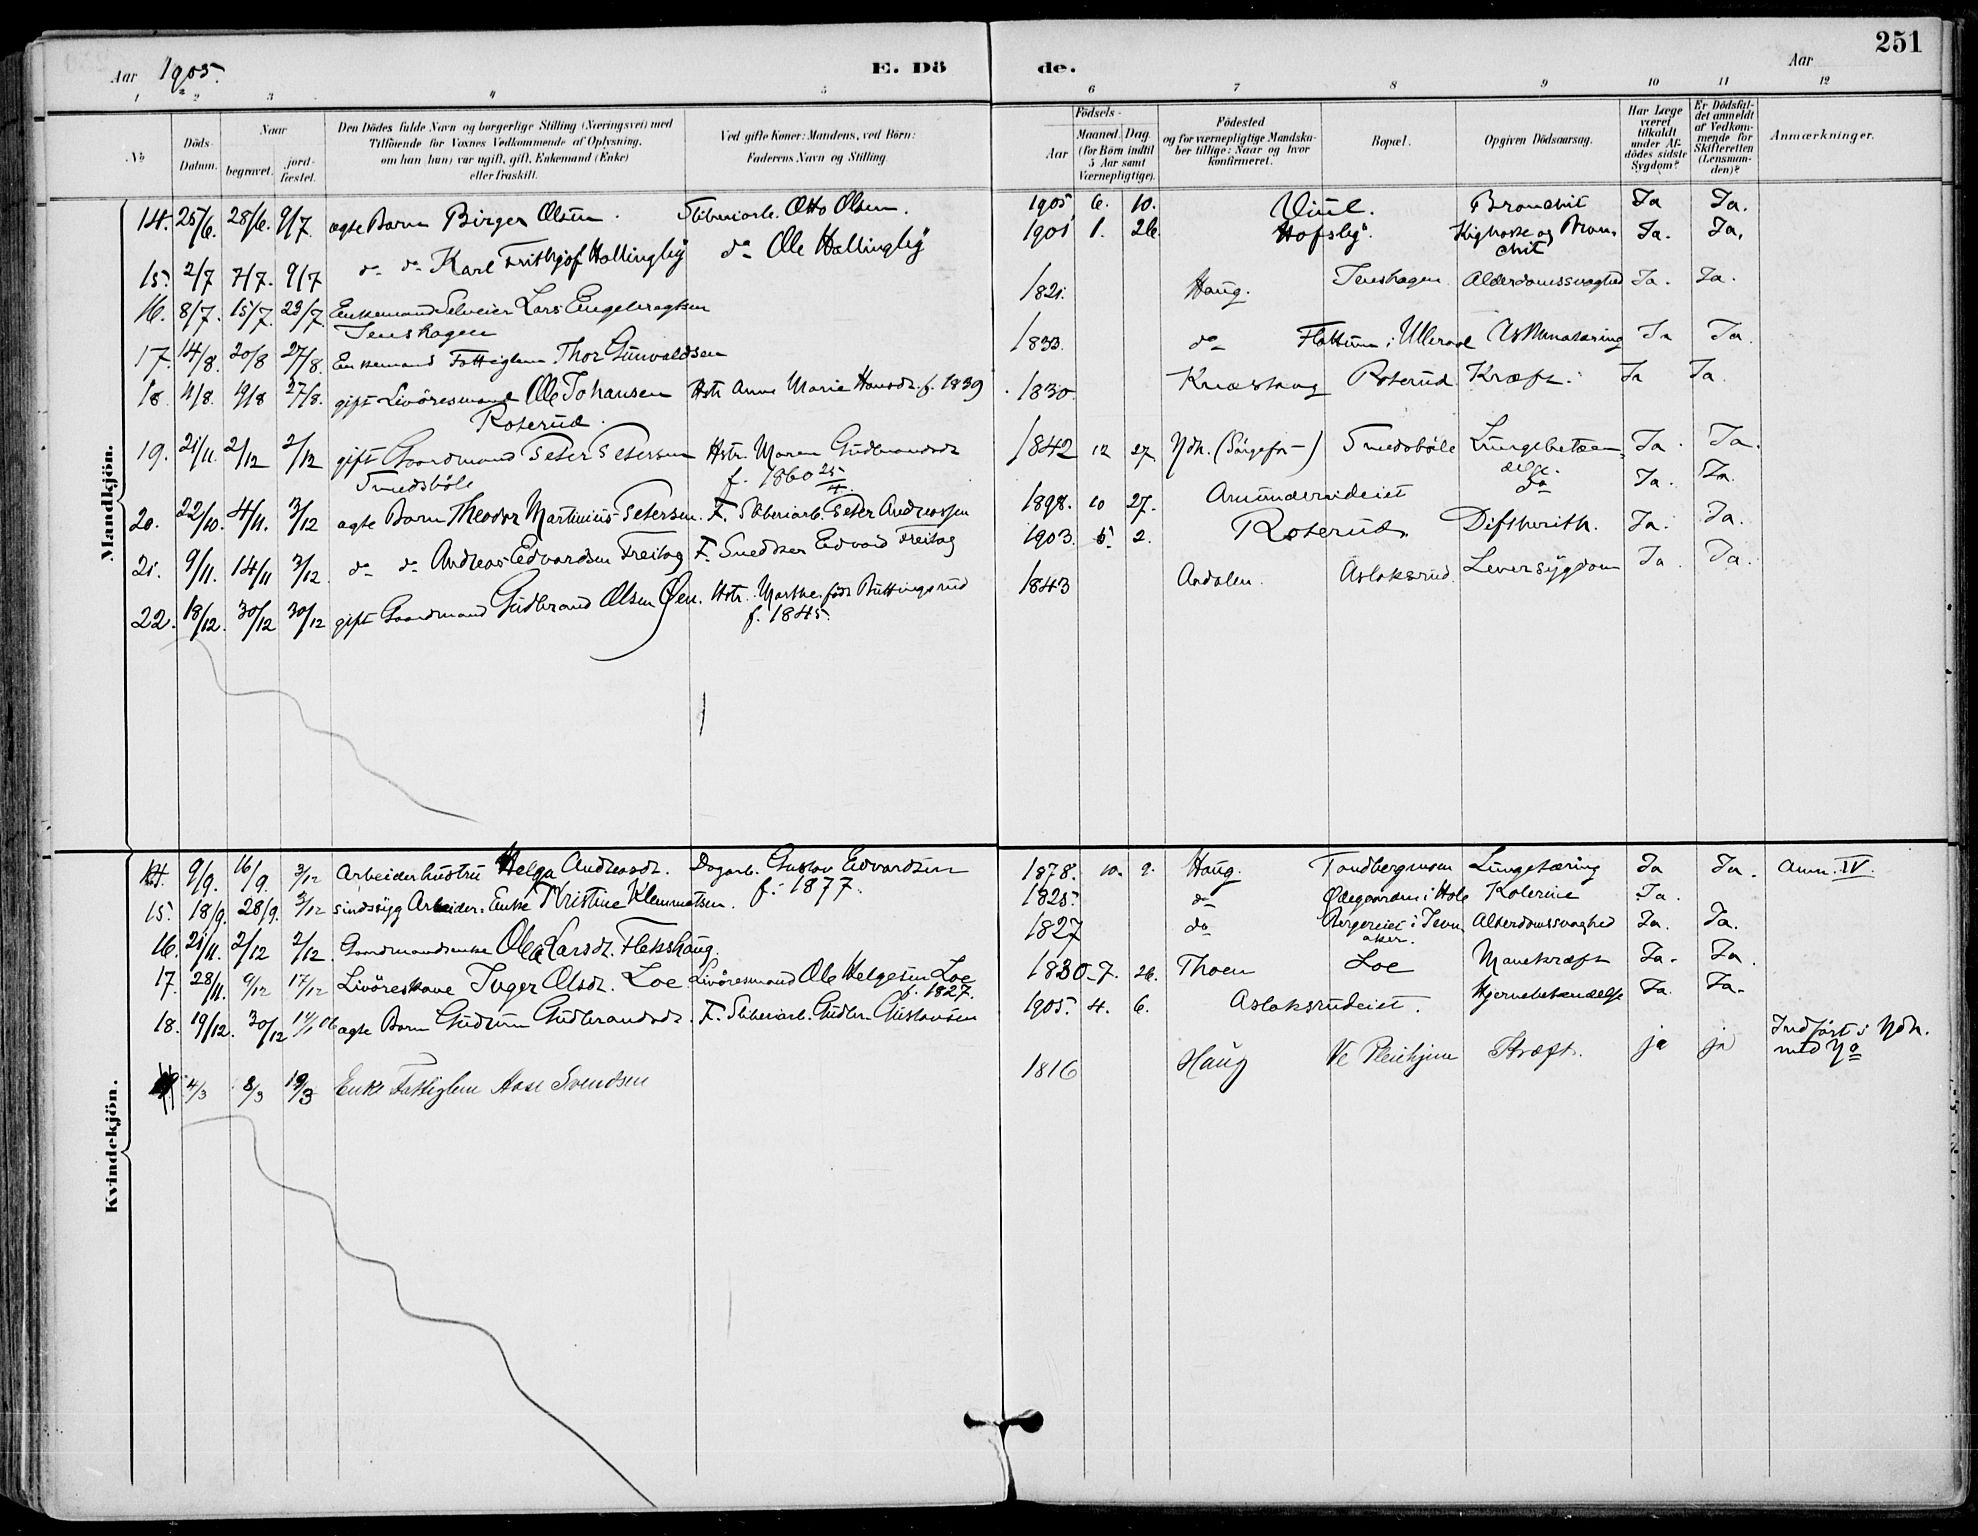 251
Aar 1905.
E. Dö de.
Aar
1 2 3 4 5 6 7 8 9 10 11 12
No
Döds-Datum.
Naar
begravet.
jord-fæstet.
Den Dödes fulde Navn og borgerlige Stilling (Næringsvei) med Tilföiende for Voxnes Vedkommende af Oplysning, om han (hun) var ugift, gift, Enkemand (Enke) eller fraskilt.
Ved gifte Koner: Mandens, ved Börn: Faderens Navn og Stilling.
Födsels-
Aar
Maaned. Dag.
(for Börn indtil 5 Aar samt Værnepligtige).
Födested og for værnepligtige Mandskaber tillige: Naar og hvor konfirmeret.
Bopæl.
Opgiven Dödsaarsag.
Har Læge været tilkaldt under Afdödes sidste Sygdom?
Er Dödsfaldet anmeldt af Vedkommende for Skifteretten (Lensmanden)?
Anmærkninger.
Mandkjön.
14. 25/6. 28/6. 9/7. ægte Barn Birger Olsen. Sliberiarb. Otto Olsen. 1905 6. 10. Viul. Bronchit Ja Ja.
15. 2/7 7/7. 9/7 do do Karl Frithjof Hallingby do Ole Hallingby 1901 1. 26. Hofsby. Kighoste og Bron-
chit Ja. Ja.
16. 8/7. 15/7. 23/7. Enkemand Selveier Lars Engebregtsen 1821. Haug. Jenshagen Alderdomssvaghed Ja. Ja.
Jenshagen
17. 14/8. 20/8 27/8. Enkemand Fattiglem Thor Gunvaldsen 1833. do Flattum i Ulleraal Ja Ja.
18 4/8. 19/8 27/8. gift Livöresmand Ole Johansen Hstr Anne Marie Hansdr. f. 1839 1830. Knæshaug Roserud Kræft. Ja Ja.
Roserud.
19. 21/11. 2/12 2/12 gift Gaardmand Peter Petersen Hstr. Maren Gudbrandsdr 1842 12 27. Ndh. Smedsböle Lungebetæn-
Smedsböle f. 1860 25/4. delse. Ja. Ja.
20. 22/10. 4/11. 3/12 ægte Barn Theodor Martinius Petersen. F. Sliberiarb. Peter Andreassen 1898. 10 27. do Ja. Ja.
21. 9/11. 14/11 3/12. do do Andreas Edvardsen Freitag F. Smed Edvard Freitag 1903. 5. 2. Roserud. Diftherith. Ja. Ja.
22. 18/12. 30/12 30/12 gift Gaardmand Gudbrand Olsen Öen. Hstr. Marthe född Buttingsrud 1843 Aadalen. Aslaksrud. Leversygdom Ja. Ja.
f. 1845.
Kvindekjön.
14. 9/9. 16/9. 3/12 Arbeiderhustru Helga Andreasdr. Dagarb. Gustav Edvardsen 1878. 10. 2. Haug. Tandbergmoen Lungetæring Ja Ja. Anm. IV.
f. 1877.
15. 18/9. 28/9. 3/12 sindssyg Arbeider-Enke Kristine Klemmetsen. 1825. do Ödegaarden i Hole Kolerine Ja.
16. 21/11. 2/12 2/12. Gaardmandsenke Olea Larsdr. Flekshaug. 1827 do Bergereiet i Jevn-
aker. Alderdomssvaghed Ja. Ja.
17. 28/11. 9/12 17/12 Livöreskone Inger Olsdr. Loe Livöresmand Ole Helgesen Loe 1830. 7. 26. Thoen Loe Mavekræft Ja. Ja.
f. 1827.
18. 19/12. 30/12 14/1 06 ægte Barn Gudrun Gudbrandsdr. F. Sliberiarb. Gudbr. Gustavsen 1905. 4. 6. Aslaksrudeiet. Hjernebetændelse Ja. Ja.
19. 4/3 8/3 19/3 Enke Fattiglem Aase Svendsen 1816 Haug Ve Pleiehjem Kræft. ja ja Indført i Ndh.
med No